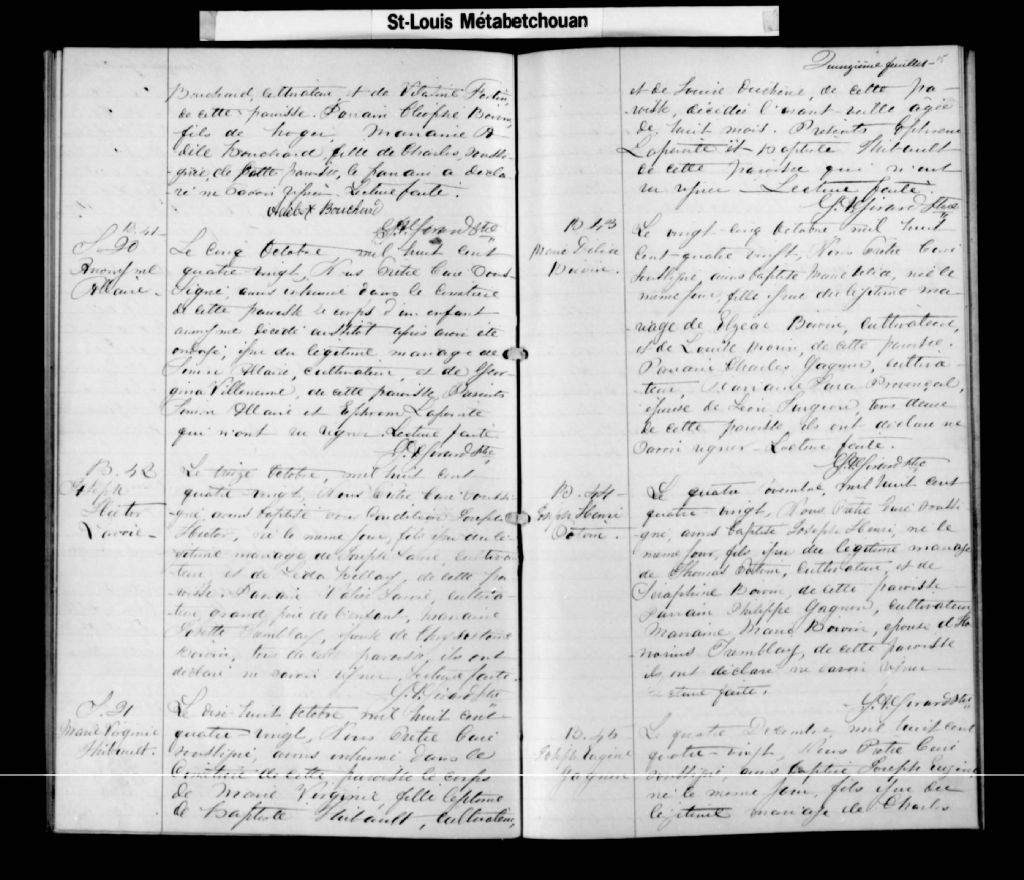 St-Louis Métabetchouan
Bouchard, cultivateur, et de Vitaline Fortin,
de cette paroisse. Parrain Cléophe Boivin,
fils de Roger, Marraine A
dèle Bouchard, fille de Charles, soussi-
gnée, de cette paroisse, le parrain a décla-
ré ne savoir signer. Lecture faite.
Adèle X Bouchard
Girard Ptre
B. 41
S. 20
Anonyme
Allaire.
Le cinq Octobre mil huit cent
quatre vingt, Nous Prêtre Curé Sous-
signé, avons inhumé dans le Cimetière
de cette paroisse le corps d'un enfant
anonyme décédé aussitôt après avoir été
ondoyé, issu du légitime mariage de
Simon Allaire, cultivateur, et de Geor-
gina Villeneuve, de cette paroisse, Présents
Simon Allaire et Ephrem Lapointe
qui n'ont su signer. Lecture faite.
Girard Ptre
B. 42
Joseph
Hector
Lavoie -
Le treize Octobre, mil huit cent
quatre vingt, Nous Prêtre Curé soussi-
gné, avons baptisé sous condition Joseph
Hector, né le même jour, fils issu du lé-
gitime mariage de Joseph Lavoie, cultiva-
teur, et de Léda, de cette pa-
roisse. Parrain Lavoie, cultiva-
teur, grand père de l'enfant, marraine
Josette Tremblay, épouse de Chrysostome
Boivin, tous de cette paroisse, ils ont
déclaré ne savoir signer. Lecture faite.
Girard Ptre
S. 21
Marie Virginie
Thibault.
Le dix-huit Octobre mil huit cent
quatre vingt, Nous Prêtre Curé
soussigné, avons inhumé dans le
Cimetière de cette paroisse le corps
de Marie Virginie, fille légitime
de Baptiste Thibault, cultivateur,
Quinzième feuillet - 15
et de Louise Duchêne, de cette pa-
roisse, décédée l'avant veille âgée
de huit mois. Présents Ephrem
Lapointe et Baptiste Thibault
de cette paroisse qui n'ont
su signer - Lecture faite.
Girard Ptre
B. 43
Marie Delia
Boivin.
Le vingt-cinq Octobre mil huit
cent-quatre vingt, Nous Prêtre Curé
soussigné, avons baptisé Marie Delia, née le
même jour, fille issue du légitime ma-
riage de Elzéar Boivin, cultivateur,
et de Louise Morin, de cette paroisse.
Parrain Charles Gagnon, cultiva-
teur, Marraine Sara Provençal,
épouse de Léon, tous deux
de cette paroisse, ils ont déclaré ne
savoir signer - Lecture faite.
Girard Ptre
B. 44 -
Joseph Henri
Potvin.
Le quatre Novembre, mil huit cent
quatre vingt, Nous Prêtre Curé soussi-
gné, avons baptisé Joseph Henri, né le
même jour, fils issu du légitime mariage
de Thomas Potvin, cultivateur, et de
Séraphine Boivin, de cette paroisse -
Parrain Philippe Gagnon, cultivateur,
Marraine Marie Boivin, épouse d'Ho-
norius Tremblay, de cette paroisse
ils ont déclaré ne savoir signer -
Lecture faite.
Girard Ptre
B. 45
Joseph Eugène
Gagnon
Le quatre Décembre, mil huit cent
quatre-vingt, Nous Prêtre Curé
soussigné, avons baptisé Joseph Eugène
né le même jour, fils issu du
légitime mariage de Charles